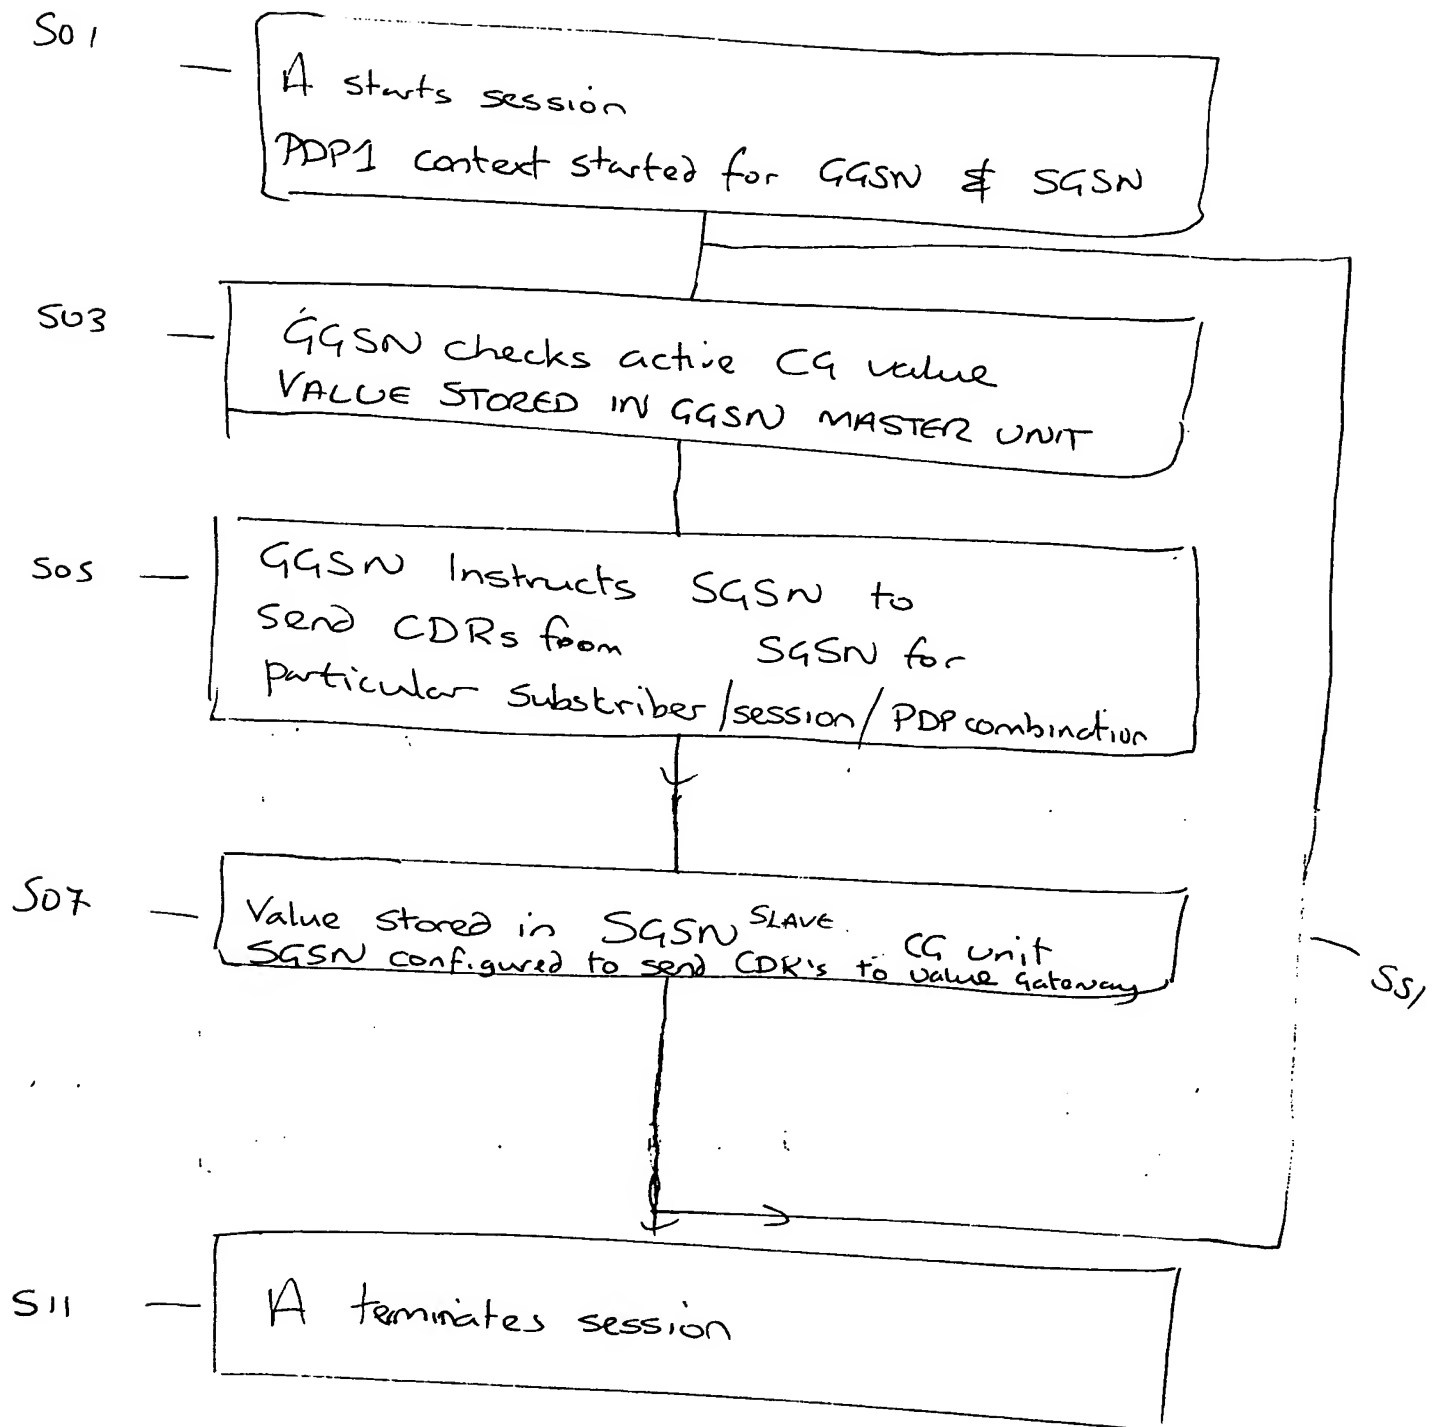 S01
A starts session
PDP1 context started for GGSN & SGSN
S03
GGSN checks active CG value
VALUE STORED IN GGSN MASTER UNIT
S05
GGSN Instructs SGSN to
send CDRs from SGSN for
particular Substriber/session/PDP combination
S07
Value stored in SGSN SLAVE CG unit
SGSN configured to send CDR's to value Gateway
SS1
S11
A terminates session